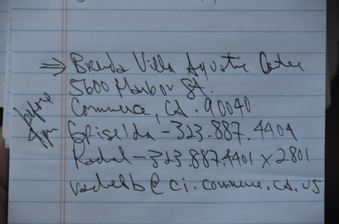 → Brenda Villa Aquatic Center
5600 Harbor St.
Commerce, Ca. 90040
Griselda - 323.887.4404
Rachel - 323.887.4401 x 2801
rachelb@ci.commerce.ca.us
before